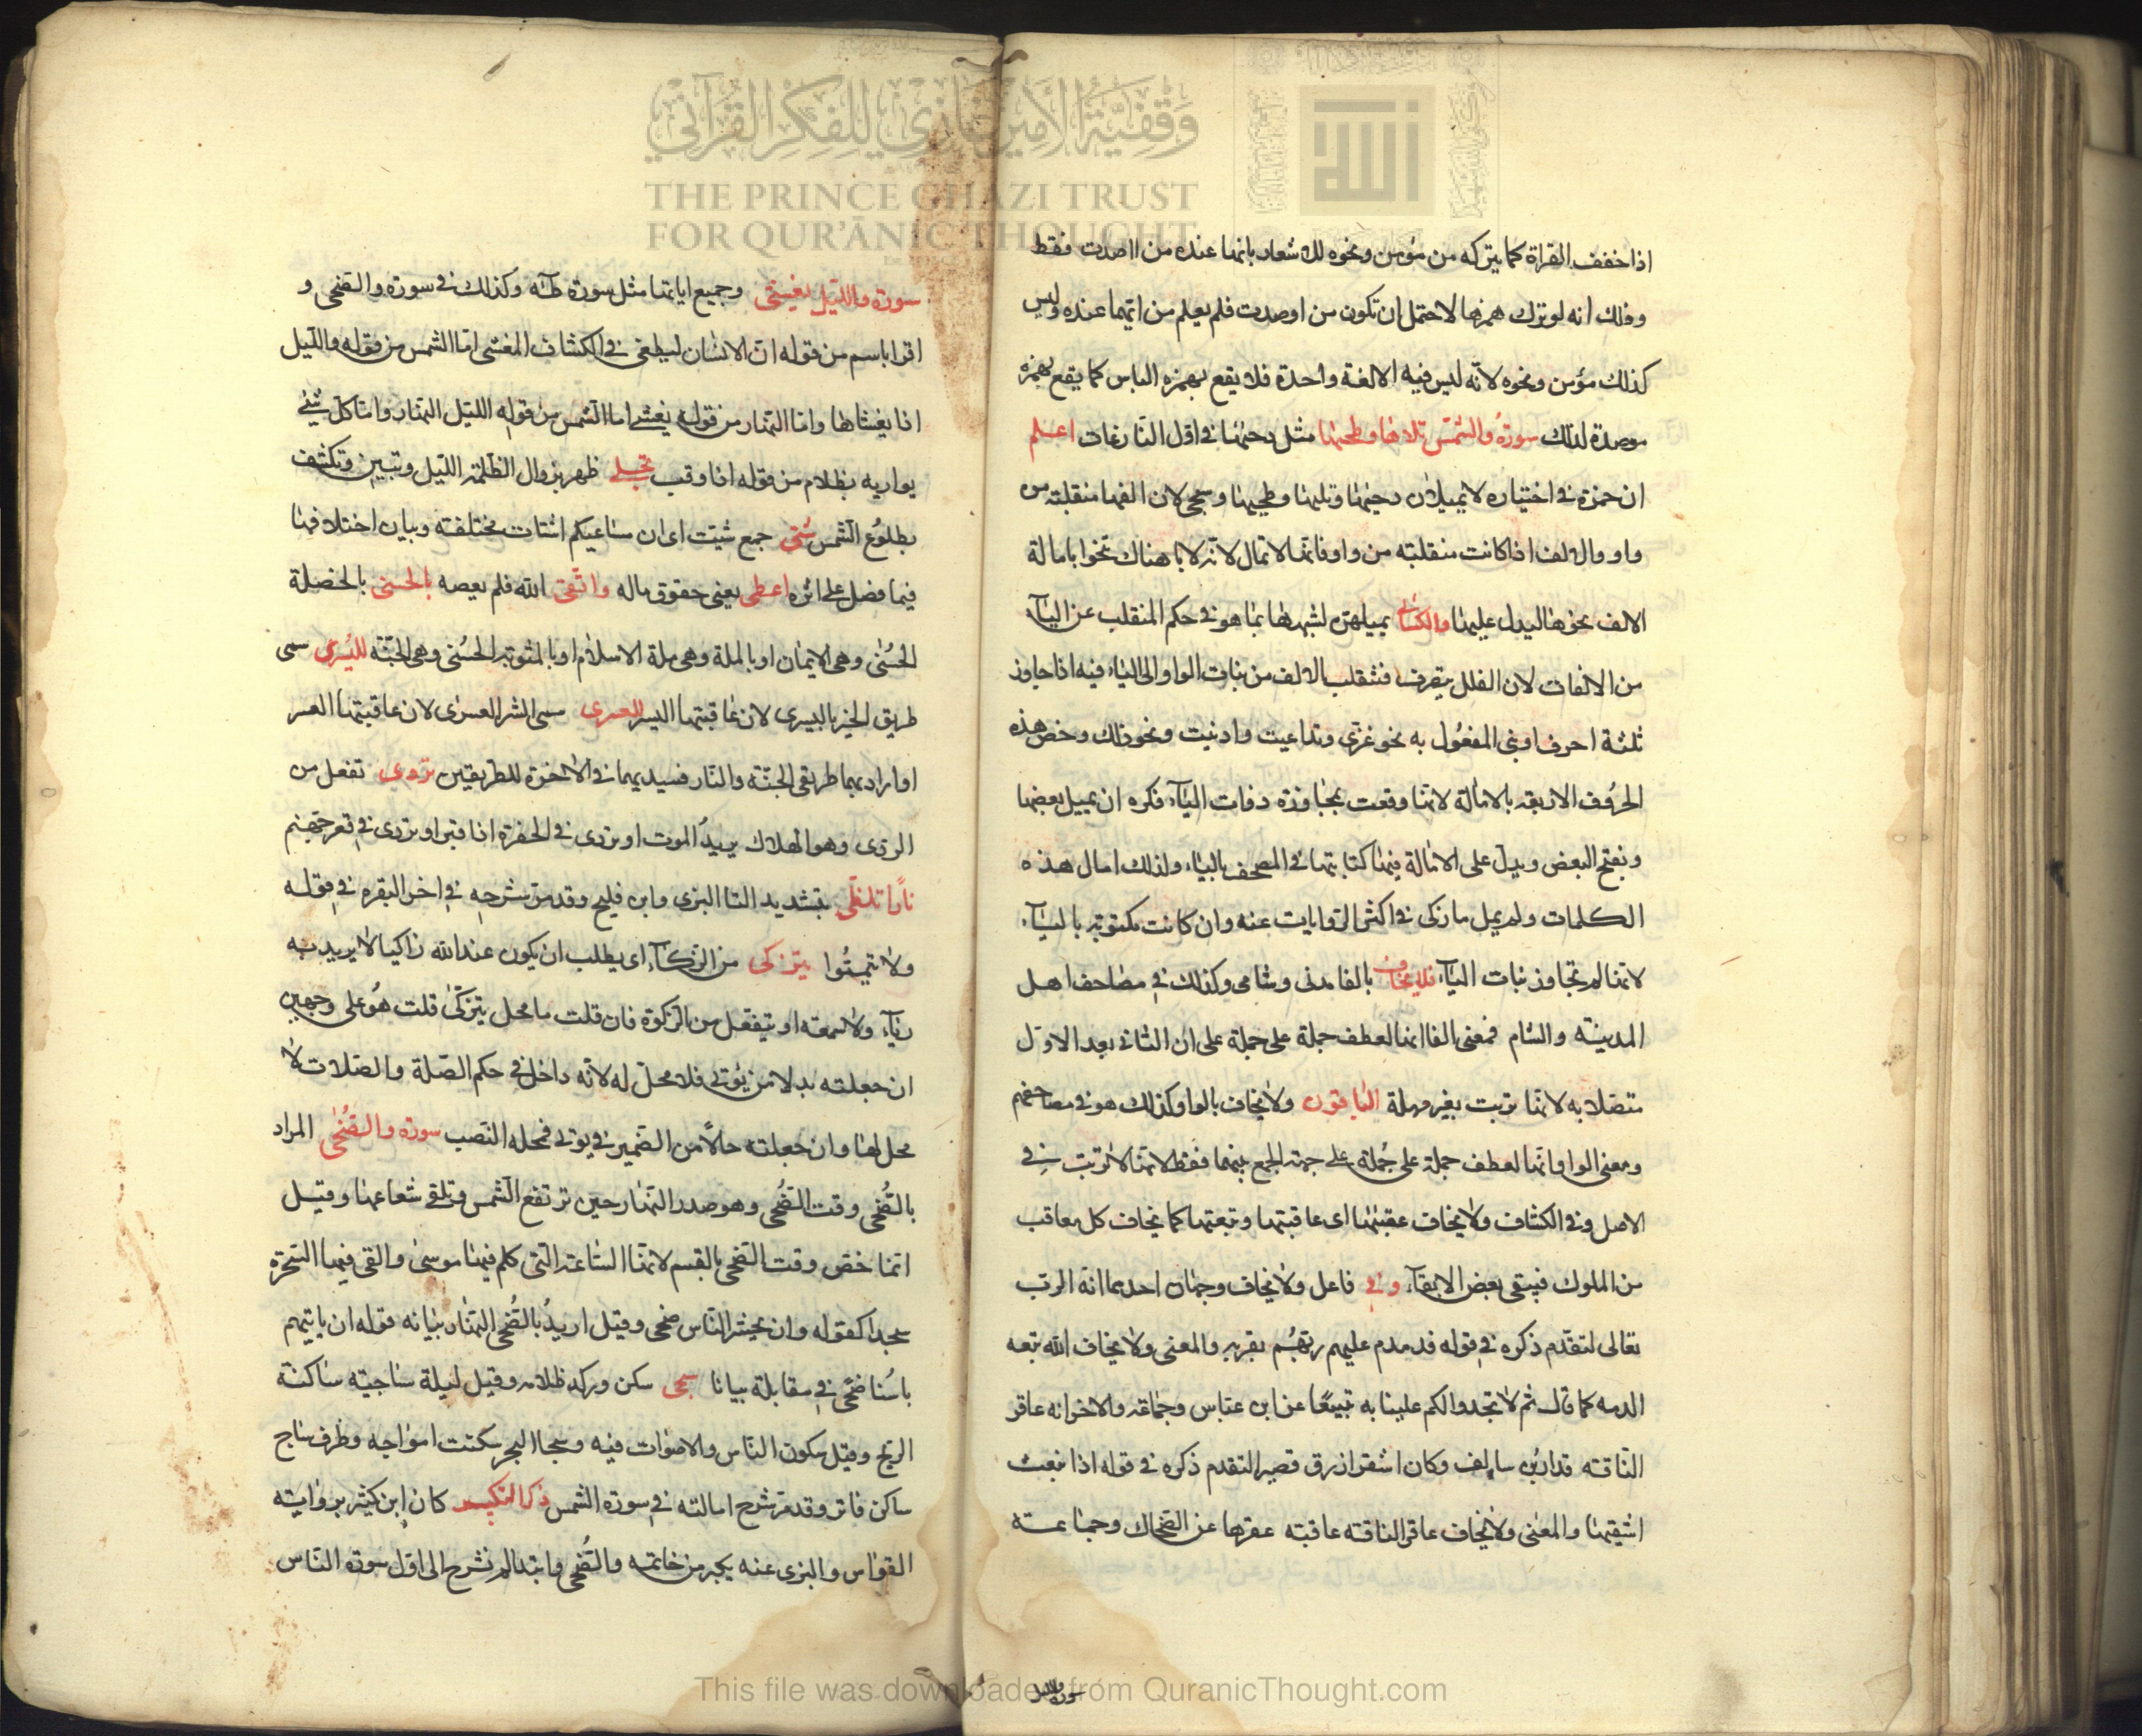 وقفية الأمير غازي للفكر القرآني
THE PRINCE GHAZI TRUST
FOR QUR'ĀNIC THOUGHT
اذا خفف القراة كما يتركه من مؤمن ونحوه للاشعار بانها عنده من ااصدت فقط
وذلك انه لو ترك همزها لاحتمل ان تكون من اوصدت فلم يعلم من ايهما عنده وليس
كذلك مؤمن ونحوه لانه ليس فيه الا لغة واحدة فلا يقع بهمزه الباس كما يقع بهمزه
موصدة لذلك سورة والشمس تلاها وطحيها مثل دحيها في اول النازعات اعلم
ان حمزة في اختياره لا يميل دحيها وتليها وطحيها وسجى لان الفها منقلبة من
واو والالف اذا كانت منقلبة من واو فانها لا تمال لانه لا يا هناك تنحوا بامالة
الالف نحوها ليدل عليها والكسائي يميلهن لشبهها بما هو في حكم المنقلب عن الياء
من الالفات لان الفعل يتصرف فتنقلب الالف من بنات الواو الى الياء فيه اذا جاوز
ثلثة احرف او بني المفعول به نحو غزي وتداعيت وادنيت ونحو ذلك وخص هذه
الحروف الاربعة بالامالة لانها وقعت بمجاوزة ذوات الياء فكره ان يميل بعضها
ويفتح البعض ويدل على الامالة فيها كتابتها في المصحف بالياء ولذلك امال هذه
الكلمات ولم يمل ما زكى في اكثر الروايات عنه وان كانت مكتوبة بالياء
لانها لم تجاوز بنات الياء فلا يخاف بالفا مدني وشامي وكذلك في مصاحف اهل
المدينة والشام فمعنى الفا انها لعطف جملة على جملة على ان الثاني بعد الاول
متصلا به لانها ترتب بغير مهلة الباقون ولا يخاف بالواو كذلك هو في مصاحفهم
ومعنى الواو انها لعطف جملة على جملة على جهة الجمع بينهما فقط لانها لا ترتب في
الاصل وفي الكشاف ولا يخاف عقبيها اى عاقبتها وتبعتها كما يخاف كل معاقب
من الملوك فيبقى بعض الابقاء وفي فاعل ولا يخاف وجهان احدهما انه الرب
تعالى لتقدم ذكره في قوله فدمدم عليهم ربهم بقربه والمعنى ولا يخاف الله تبعة
الدمدمة كما قال ثم لا تجدوا لكم علينا به تبيعا عن ابن عباس وجماعة والاخر انه عاقر
الناقة قدار بن سالف وكان اشقر ازرق قصير التقدم ذكره في قوله اذا نبعث
اشقيها والمعنى ولا يخاف عاقر الناقة عاقبة عقرها عن الضحاك وجماعته
سورة والليل
سورة والليل يغشى وجميع اياتها مثل سورة طه وكذلك في سورة والضحى و
اقرا باسم من قوله ان الانسان ليطغى في الكشاف المغشى اما الشمس من قوله والليل
اذا يغشاها واما النهار من قوله يغشى اما الشمس من قوله الليل النهار واما كل شيء
يواريه بظلام من قوله اذا وقب تجلى ظهر بزوال الظلمة الليل وتبين وتكشف
بطلوع الشمس شتى جمع شتيت اى ان مساعيكم اشتات مختلفة وبيان اختلافها
فيما فضل على اثره اعطى يعني حقوق ماله واتقى الله فلم يعصه بالحسنى بالخصلة
الحسنى وهي الايمان او بالملة وهي ملة الاسلام او بالمثوبة الحسنى وهي الجنة لليسرى سمى
طريق الخير باليسرى لان عاقبتها اليسر للعسرى سمى الشر العسرى لان عاقبتها العسر
او اراد بهما طريقي الجنة والنار فسيديهما في الاخرة للطريقين تردى تفعل من
الردى وهو الهلاك يريد الموت او تردى في الحفرة اذا قبر او تردى في قعر جهنم
نارا تلظى بتشديد التا البزى وابن فليح وقد مر شرحه في اخر البقرة في قوله
ولا تيمموا يتزكى من الزكاء اى يطلب ان يكون عند الله زاكيا لا يريد به
رياء ولا سمعة او يتفعل من الزكوة فان قلت ما محل يتزكى قلت هو على وجهين
ان جعلته بدلا من يؤتى فلا محل له لانه داخل في حكم الصلة والصلات لا
محل لها وان جعلته حالا من الضمير في يوتى فمحله النصب سورة والضحى المراد
بالضحى وقت الضحى وهو صدر النهار حين ترتفع الشمس وتلقى شعاعها وقيل
انما خص وقت الضحى بالقسم لانها الساعة التى كلم فيها موسى والقى فيها السحرة
سجدا كقوله وان يحشر الناس ضحى وقيل اريد بالضحى النهار بيانه قوله ان ياتيهم
باسنا ضحى في مقابلة بياتا سجى سكن وركد ظلامه وقيل ليلة ساجية ساكنة
الريح وقيل سكون الناس والاصوات فيه وسجا البحر سكنت امواجه وطرف ساج
ساكن فاتر وقد مر شرح امالته في سورة الشمس ذكر التكبير كان ابن كثير برواية
القواس والبزى عنه يكبر من خاتمه والضحى وابتدا الم نشرح الى اول سورة الناس
This file was downloaded from QuranicThought.com